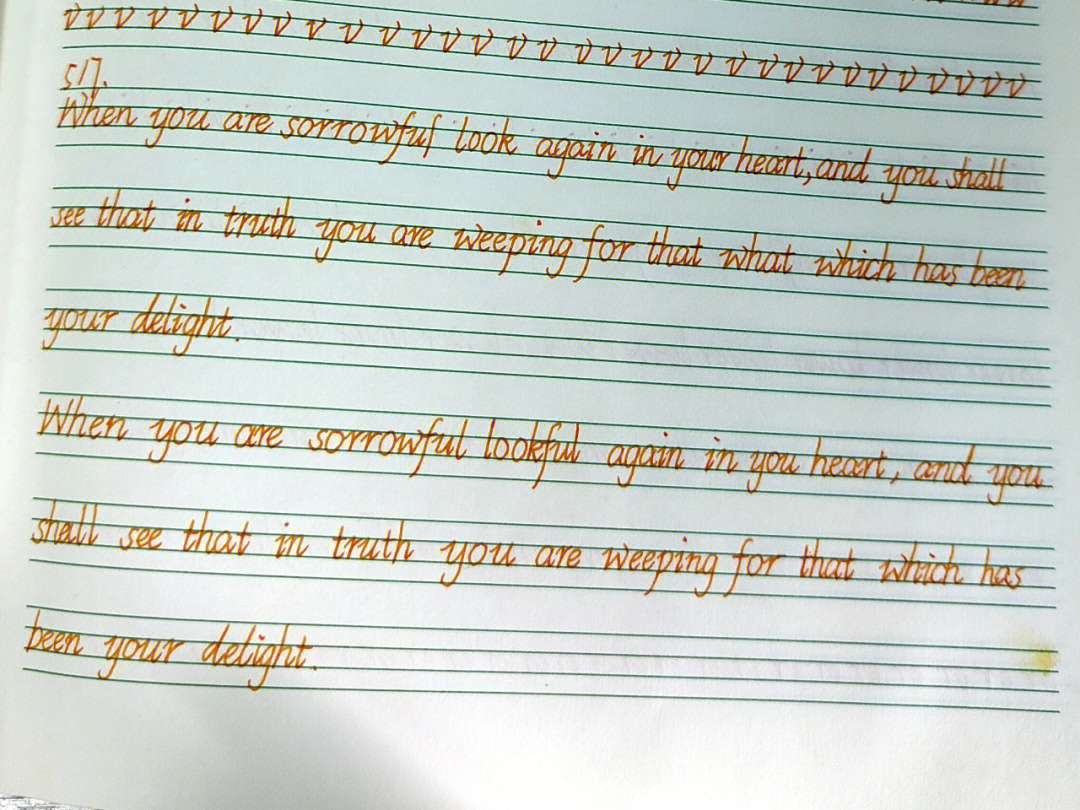 v v v v v v v v v v v v v v v v v v v v v v v v v v v v v v v v
5/7.
When you are sorrowful look again in your heart, and you shall
see that in truth you are weeping for that what which has been
your delight.
When you are sorrowful lookful again in you heart, and you
shall see that in truth you are weeping for that which has
been your delight.